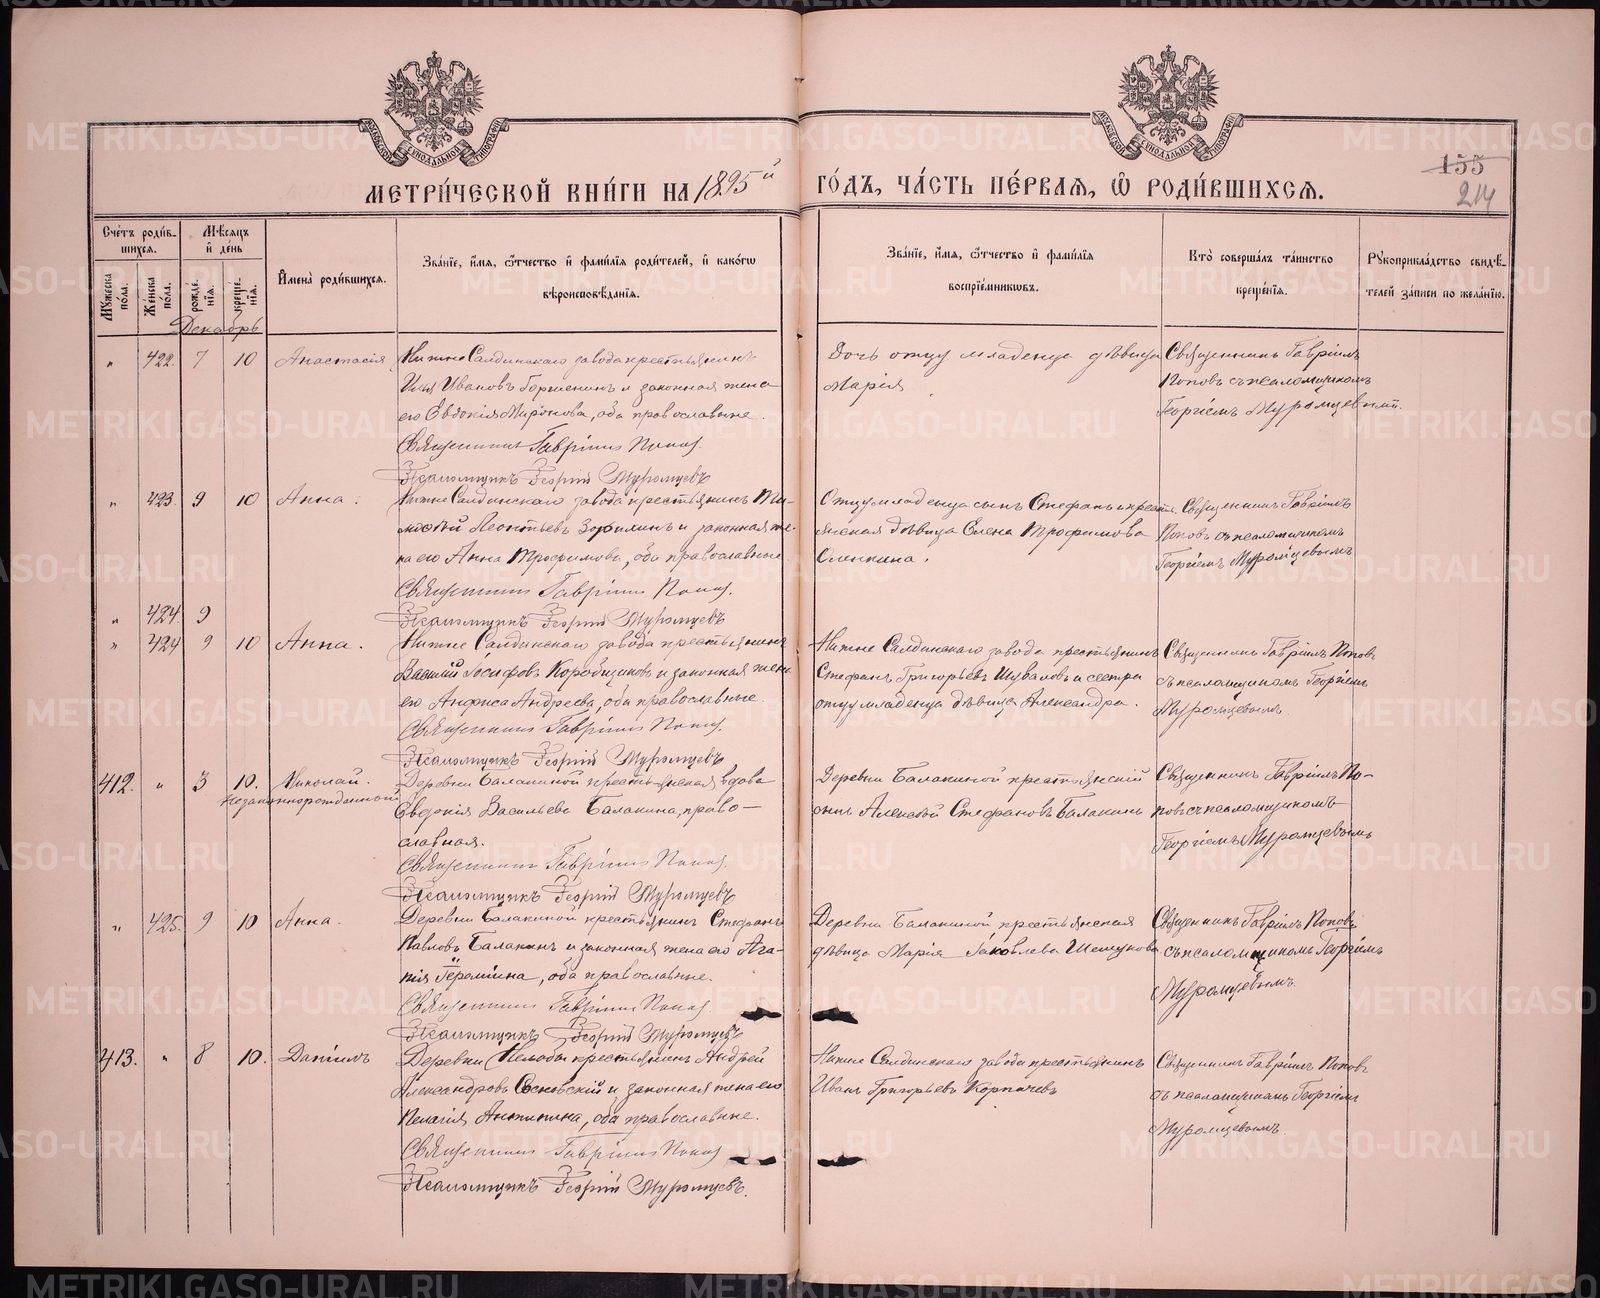 МОСКОВСКОЙ СѴНОДАЛЬНОЙ ТИПОГРАФІИ
МОСКОВСКОЙ СѴНОДАЛЬНОЙ ТИПОГРАФІИ
155
214
МЕТРИ́ЧЕСКОЙ КНИ́ГИ НА 1895й ГО́ДЪ, ЧА́СТЬ ПЕ́РВАЯ, Ѡ҆ РОДИ́ВШИХСЯ.
Сче́тъ роди́вшихся.
Му́жеска по́ла.
Же́нска по́ла.
Мѣ́сяцъ и҆ де́нь
рожде́нїя.
креще́нїя.
И҆мена̀ роди́вшихся.
Зва́нїе, и҆́мя, ѻ҆́тчество и҆ фами́лїя роди́телей, и҆ како́гѡ вѣроисповѣ́данїя.
Зва́нїе, и҆́мя, ѻ҆́тчество и҆ фами́лїя воспрїе́мникѡвъ.
Кто̀ соверша́лъ та́инство креще́нїя.
Рꙋкоприкла́дство свидѣ́телей за́писи по жела́нїю.
Декабрь
" 422. 7 10 Анастасія
Нижне Салдинскаго завода крестьянинъ
Илія Ивановъ Горшенинъ и законная жена
его Евдокія Миронова, оба православные.
Священникъ Гавріилъ Поповъ.
Псаломщикъ Георгій Муромцевъ
Дочь отцу младенца дѣвица
Марія
Священникъ Гавріилъ
Поповъ съ псаломщикомъ
Георгіемъ Муромцевымъ.
" 423. 9 10 Анна.
Нижне Салдинскаго завода крестьянинъ Ти-
мофей Леонтьевъ Зорилинъ и законная же-
на его Анна Трофимова, оба православные.
Священникъ Гавріилъ Поповъ.
Псаломщикъ Георгій Муромцевъ
Отцу младенца сынъ Стефанъ и крестья-
янская дѣвица Елена Трофимова
Священникъ Гавріилъ
Поповъ съ псаломщикомъ
Георгіемъ Муромцевымъ
" 424. 9
" 424 9 10 Анна.
Нижне Салдинскаго завода крестьянинъ
Василій Іосифовъ Коробщиковъ и законная жена
его Анфиса Андреева, оба православные.
Священникъ Гавріилъ Поповъ.
Псаломщикъ Георгій Муромцевъ
Нижне Салдинскаго завода крестьянинъ
Стефанъ Григорьевъ Шуваловъ и сестра
отцу младенца дѣвица Александра.
Священникъ Гавріилъ Поповъ
съ псаломщикомъ Георгіемъ
Муромцевымъ
412. " 3 10. Николай.
незаконнорожденный
Деревни Балакиной крестьянская вдова
Евдокія Васильева Балакина, право-
славная.
Священникъ Гавріилъ Поповъ.
Псаломщикъ Георгій Муромцевъ
Деревни Балакиной крестьянскій
сынъ Алексѣй Стефановъ Балакинъ
Священникъ Гавріилъ По-
повъ съ псаломщикомъ
Георгіемъ Муромцевымъ
" 425. 9 10 Анна.
Деревни Балакиной крестьянинъ Стефанъ
Павловъ Балакинъ и законная жена его Ага-
пія Героміина, оба православные.
Священникъ Гавріилъ Поповъ.
Псаломщикъ Георгій Муромцевъ
Деревни Балакиной крестьянская
дѣвица Марія Іаковлева Шелгунова
Священникъ Гавріилъ Поповъ
съ псаломщикомъ Георгіемъ
Муромцевымъ
413. " 8 10. Даніилъ
Деревни Нелобы крестьянинъ Андрей
Александровъ Сосновскій и законная жена его
Пелагія Антипина, оба православные.
Священникъ Гавріилъ Поповъ
Псаломщикъ Георгій Муромцевъ.
Нижне Салдинскаго завода крестьянинъ
Иванъ Григорьевъ Корпачевъ
Священникъ Гавріилъ Поповъ
съ псаломщикомъ Георгіемъ
Муромцевымъ.
METRIKI.GASO-URAL.RU